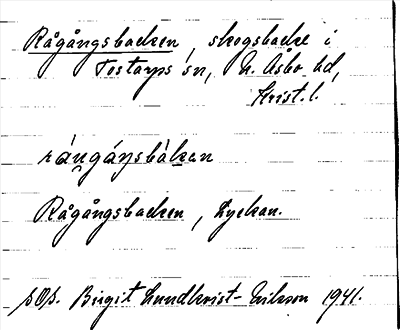 Rågångsbacken, skogsbacke i
Tostarps sn, N. Åsbo hd,
Krist. l.
rángáŋsbàkən
Rågångsbacken, Lyckan.
sOp. Birgit Lundkvist-Erikson 1941.